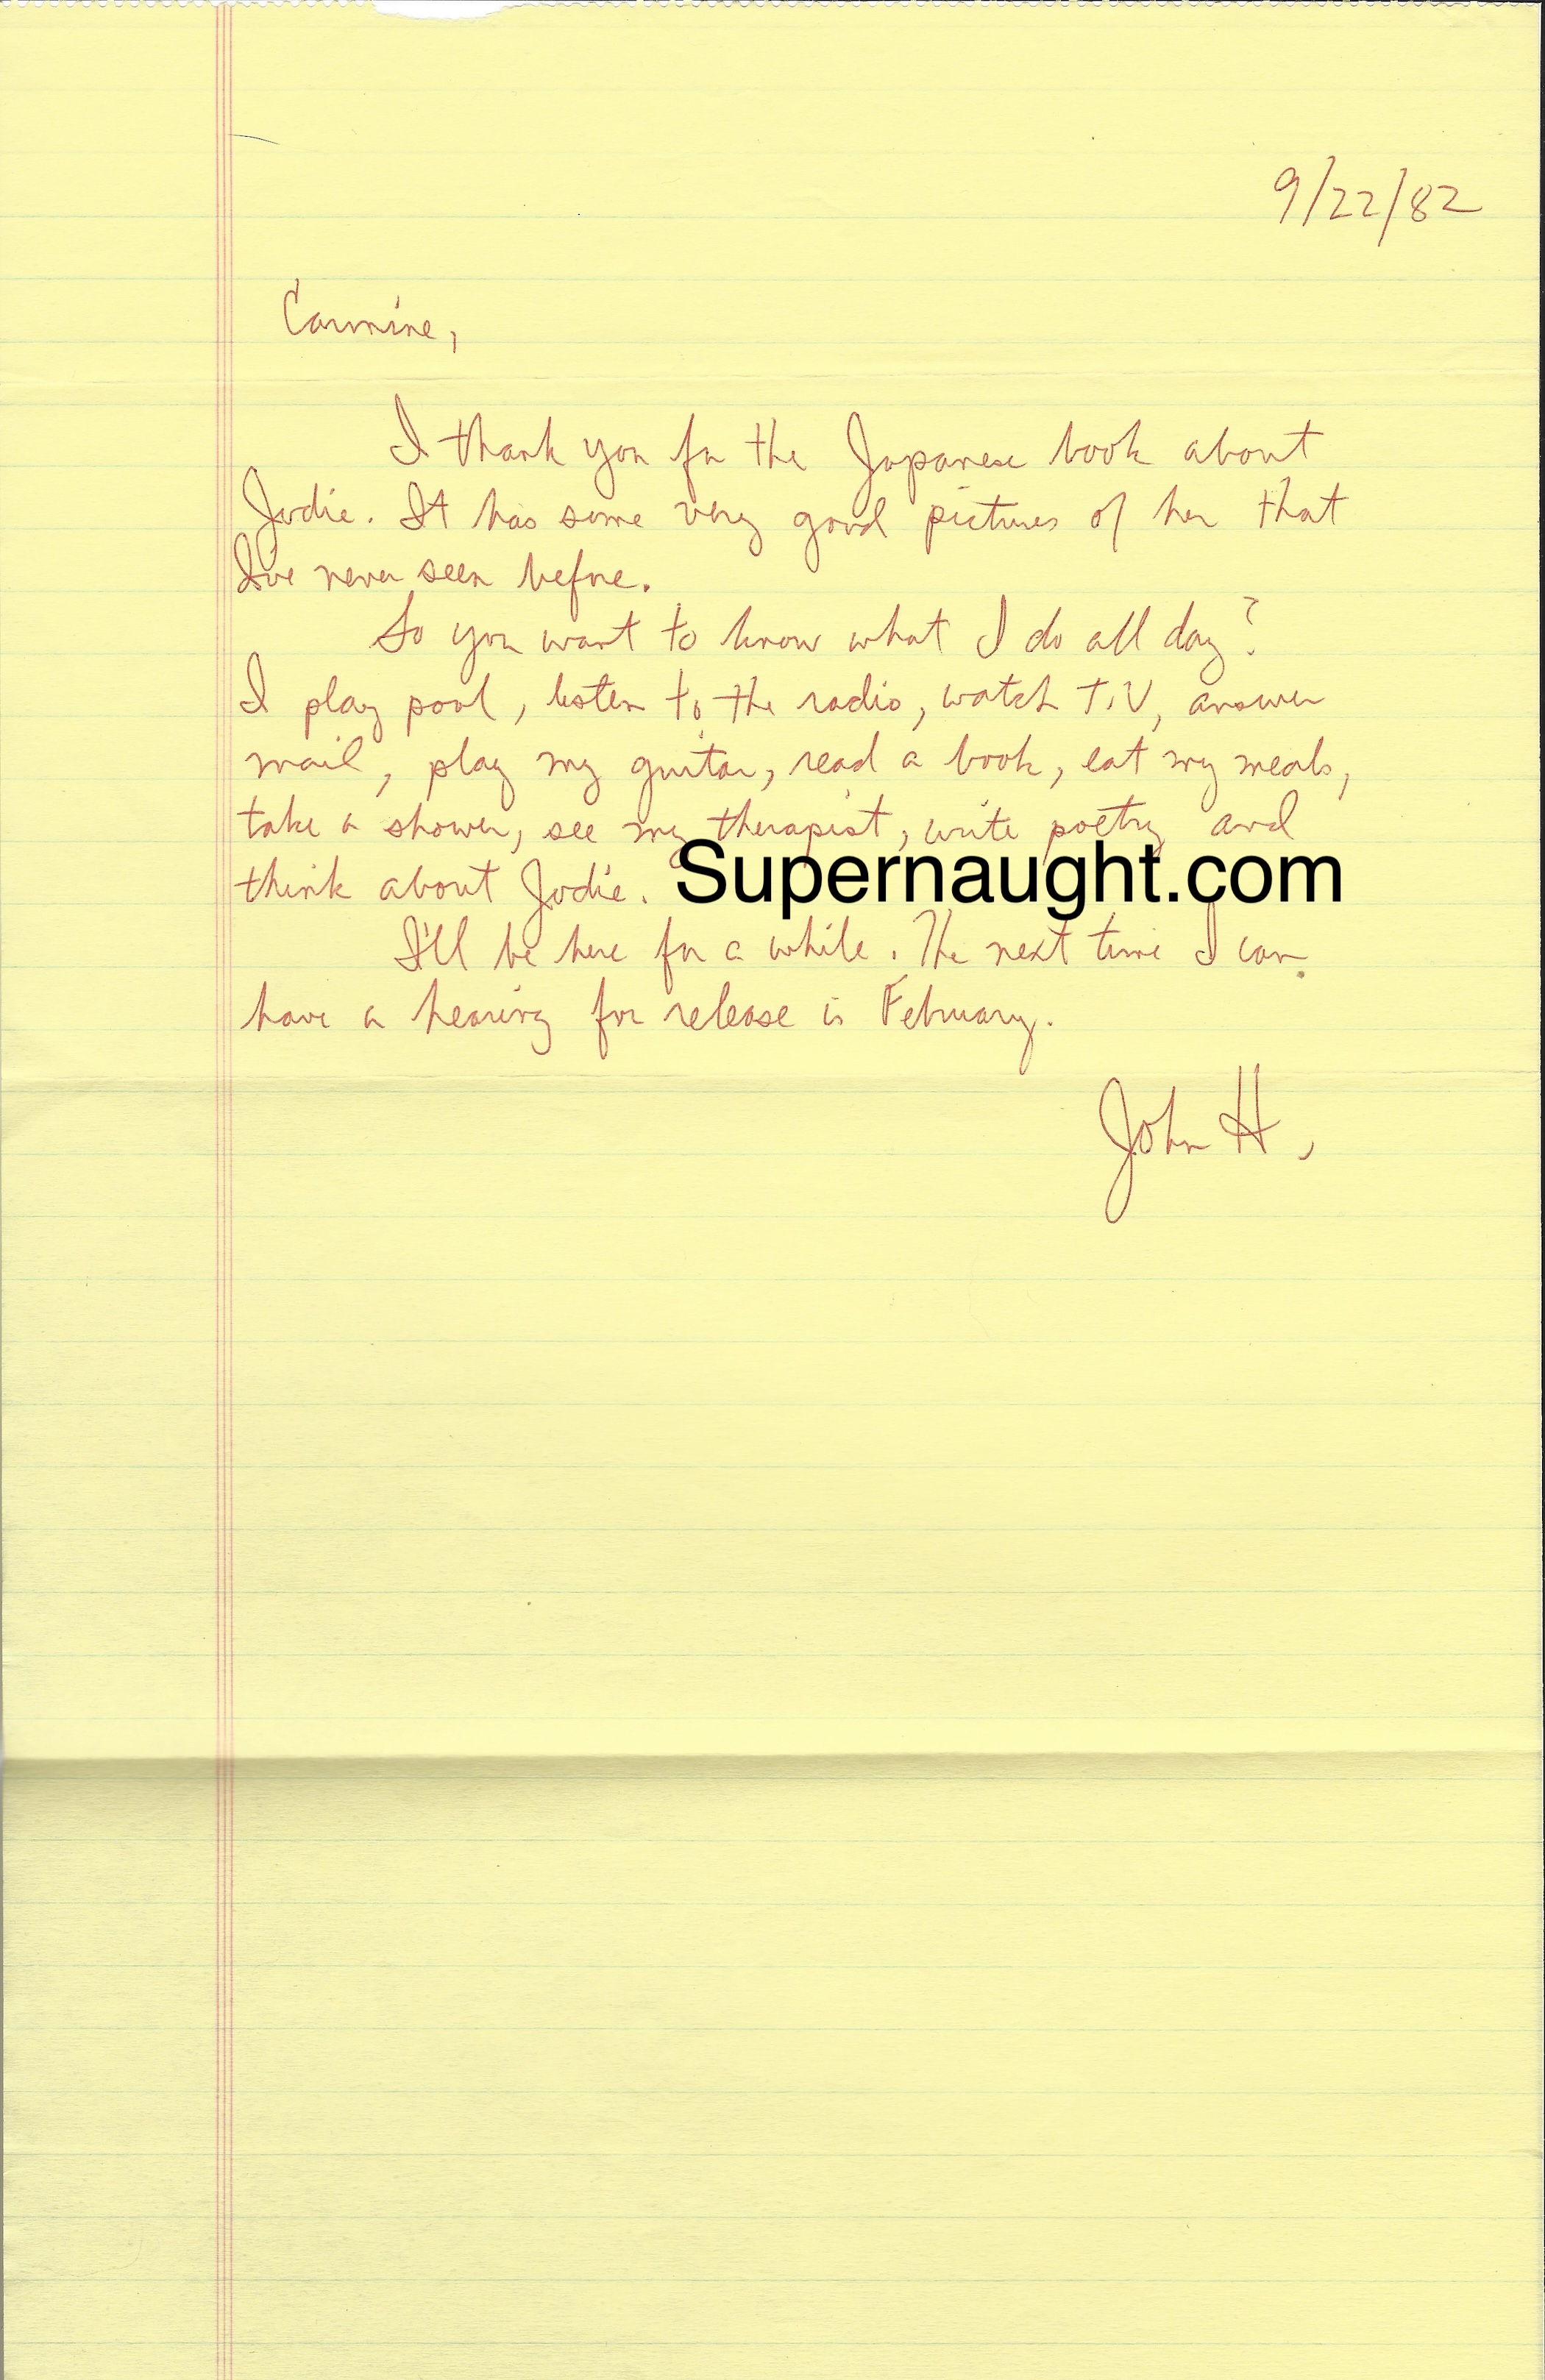 9/22/82
Carmine,
I thank you for the Japanese book about
Jodie. It has some very good pictures of her that
I've never seen before.
So you want to know what I do all day?
I play pool, listen to the radio, watch T.V, answer
mail, play my guitar, read a book, eat my meals,
take a shower, see my therapist, write poetry and
think about Jodie. Supernaught.com
I'll be here for a while. The next time I can
have a hearing for release is February.
John H.